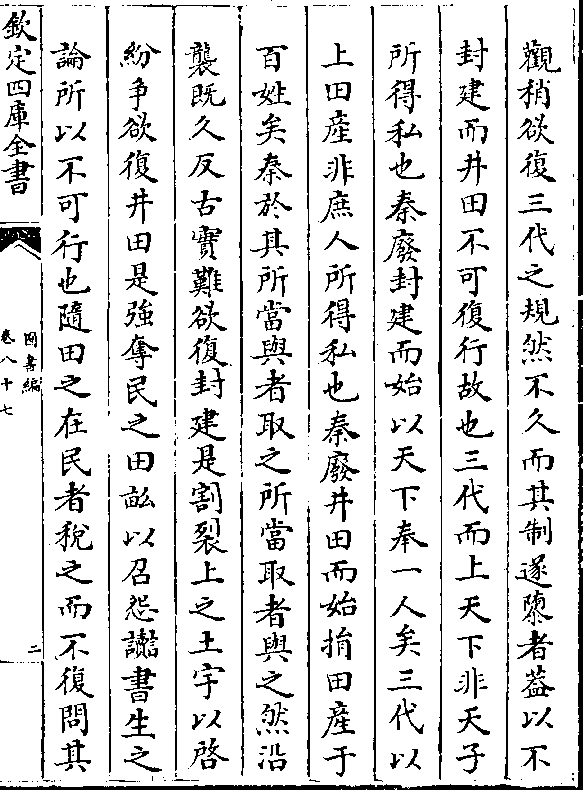 觀稍欲復三代之規然不久而其制遂隳者葢以不
封建而井田不可復行故也三代而上天下非天子
所得私也秦廢封建而始以天下奉一人矣三代以
上田産非庶人所得私也秦廢井田而始捐田産于
百姓矣秦於其所當與者取之所當取者與之然沿
襲既久反古實難欲復封建是割裂上之土宇以啓
紛争欲復井田是強奪民之田畝以召怨讟書生之
論所以不可行也隨田之在民者稅之而不復問其
欽定四庫全書
圖書編
卷八十七
二